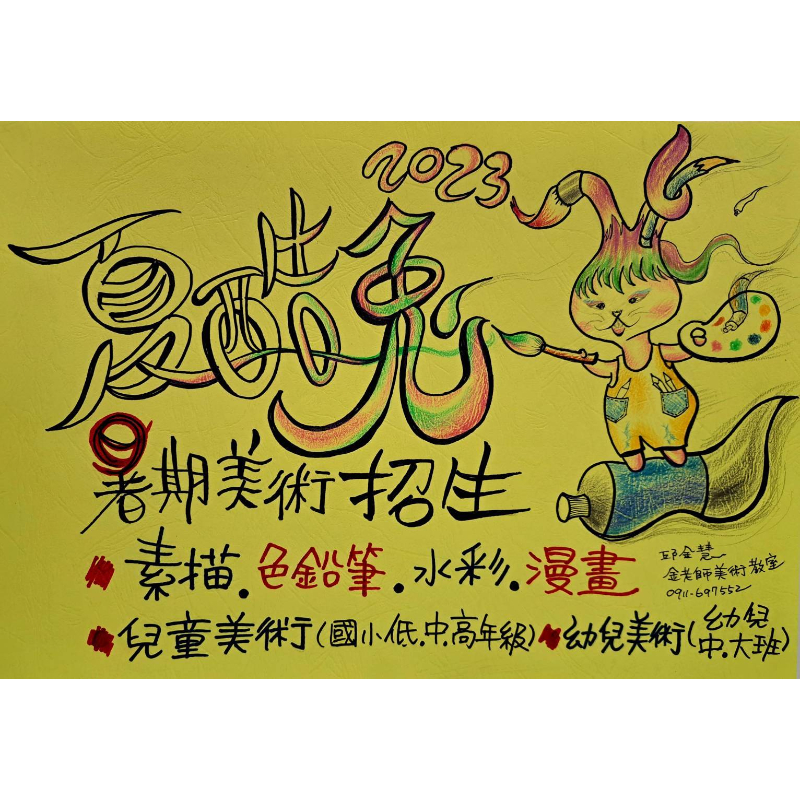 2023
夏酷兔
暑期美術招生
素描.色鉛筆.水彩.漫畫
邱金慧
金老師美術教室
0911-697552
兒童美術(國小低.中.高年級) 幼兒美術(幼兒中.大班)